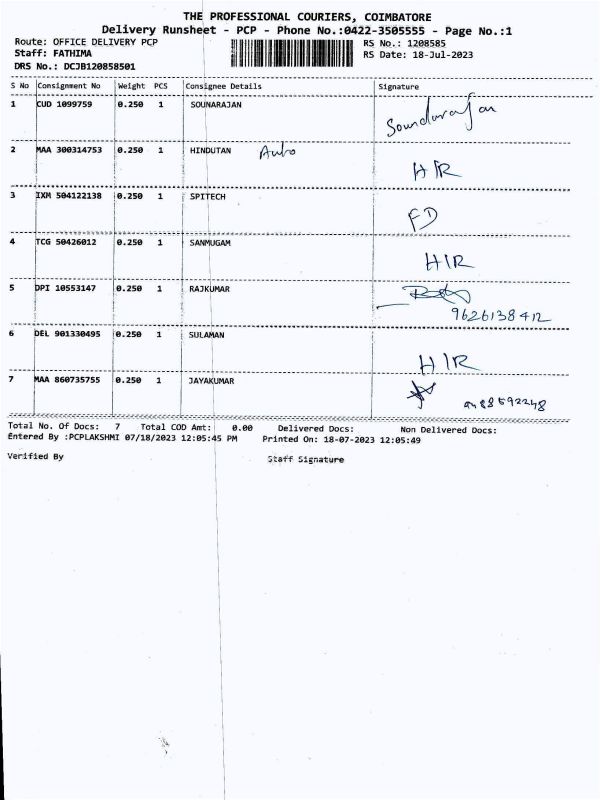 THE PROFESSIONAL COURIERS, COIMBATORE
Delivery Runsheet - PCP - Phone No.:0422-3505555 - Page No.:1
Route: OFFICE DELIVERY PCP RS No.: 1208585
Staff: FATHIMA RS Date: 18-Jul-2023
DRS No.: DCJB120858501
S No Consignment No Weight PCS Consignee Details Signature
1 CUD 1099759 0.250 1 SOUNARAJAN Soundarajan
2 MAA 300314753 0.250 1 HINDUTAN Auto H/R
3 IXM 504122138 0.250 1 SPITECH FD
4 TCG 50426012 0.250 1 SANMUGAM H/R
5 DPI 10553147 0.250 1 RAJKUMAR
9626138412
6 DEL 901330495 0.250 1 SULAMAN H/R
7 MAA 860735755 0.250 1 JAYAKUMAR
Total No. Of Docs: 7 Total COD Amt: 0.00 Delivered Docs: Non Delivered Docs:
Entered By :PCPLAKSHMI 07/18/2023 12:05:45 PM Printed On: 18-07-2023 12:05:49
Verified By Staff Signature